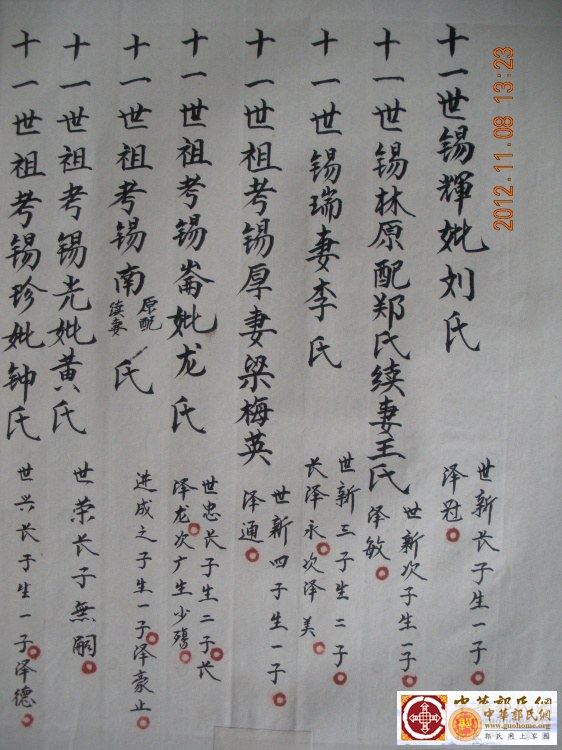 十一世锡輝妣刘氏
世新长子生一子
泽冠
十一世锡林原配郑氏续妻王氏
世新次子生一子
泽敏
十一世锡瑞妻李氏
世新三子生二子
长泽永次泽美
十一世祖考锡厚妻梁梅英
世新四子生一子
泽通
十一世祖考锡崙妣龙氏
世忠长子生二子长
泽龙次广生少殤
十一世祖考锡南原配
续妻
氏
进成之子生一子泽豪止
十一世祖考锡光妣黄氏
世荣长子無嗣
十一世祖考锡珍妣钟氏
世兴长子生一子泽德
2012.11.08 13:23
中華郭氏網
中華郭氏網
www.guohome.org
郭氏网上家园